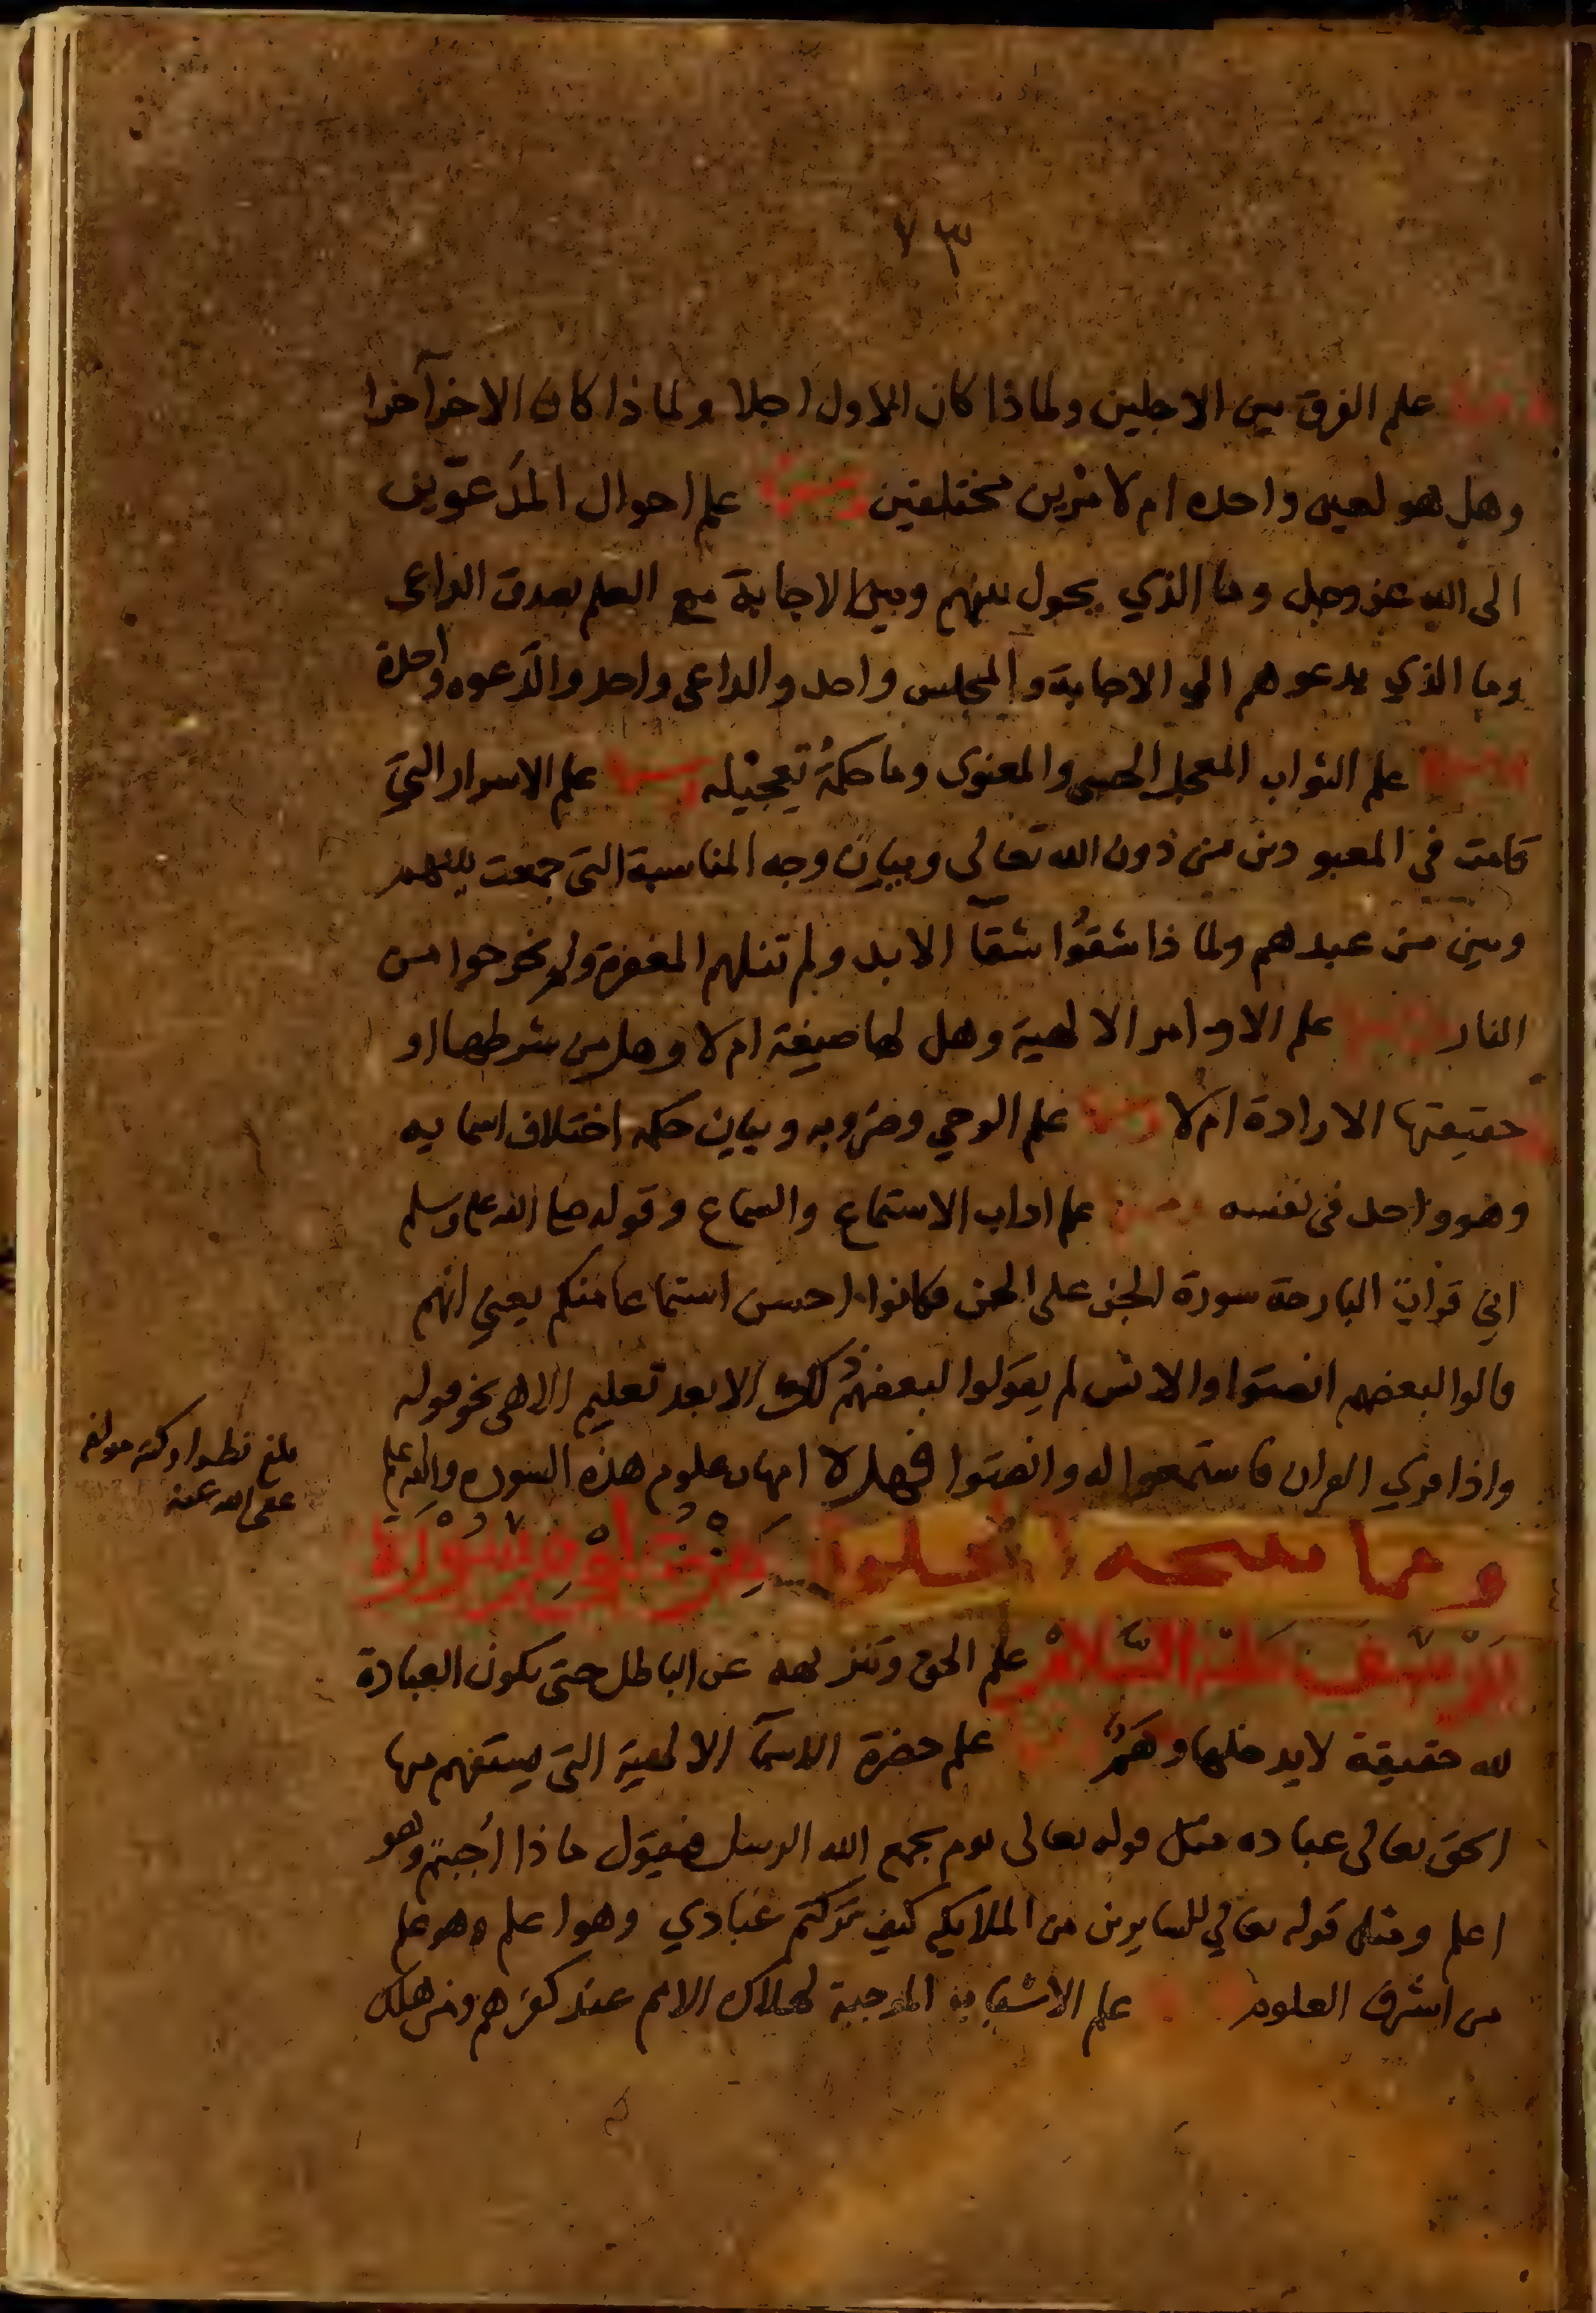 ٧٣
ومنها علم الفرق بين الاجلين ولماذا كان الاول اجلا ولماذا كان الاخر آخرا
وهل هو لعين واحده ام لامرين مختلفين ومنها علم احوال المدعوّين
الى الله عز وجل وما الذي يحول بينهم وبين الاجابة مع العلم بصدق الداعى
وما الذي يدعوهم الي الاجابة والمجلس واحد والداعى واحد والدعوه واحدة
ومنها علم الثواب المعجل الحسى والمعنوى وما حكمة تعجيله ومنها علم الاسرار التي
قامت في المعبودين من دون الله تعالى وبيان وجه المناسبة التى جمعت بينهم
وبين من عبدهم ولماذا شقوا شقآ الابد ولم تنلهم المغفرة ولم يخرجوا من
النار ومنها علم الاوامر الالهية وهل لها صيغة ام لا وهل من شرطها او
حقيقتها الارادة ام لا ومنها علم الوحي وضروبه وبيان حكمه اختلاف اسمايه
وهو واحد فى نفسه ومنها علم اداب الاستماع والسماع وقوله صلى الله عليه وسلم
اني قرات البارحة سورة الجن على الجن فكانوا احسن استماعا منكم يعني انهم
قالوا لبعضهم انصتوا والانس لم يقولوا لبعضهم ذلك الا بعد تعليم الاهى نحو قوله
واذا قري القران فاستمعوا له وانصتوا فهذه امهات علوم هذه السوره والله اعلم
بلغ نظرا وكتبه مولفه
عفى الله عنه
ومما نتيجه الخلوا من علوم سورة
يوسف عليه السلام علم الحق وتنزيهه عن الباطل حتى يكون العبادة
لله حقيقة لا يدخلها وهم ومنها علم حضرة الاسمآ الالهية التى يستفهم بها
الحق تعالى عباده مثل قوله تعالى يوم يجمع الله الرسل فيقول ماذا أجبتم وهو
اعلم ومثل قوله تعالي للسايرين من الملايكه كيف تركتم عبادي وهو اعلم وهو علم
من اشرف العلوم ومنها علم الاسباب الموجبة لهلاك الامم عند كفرهم ومن هلك